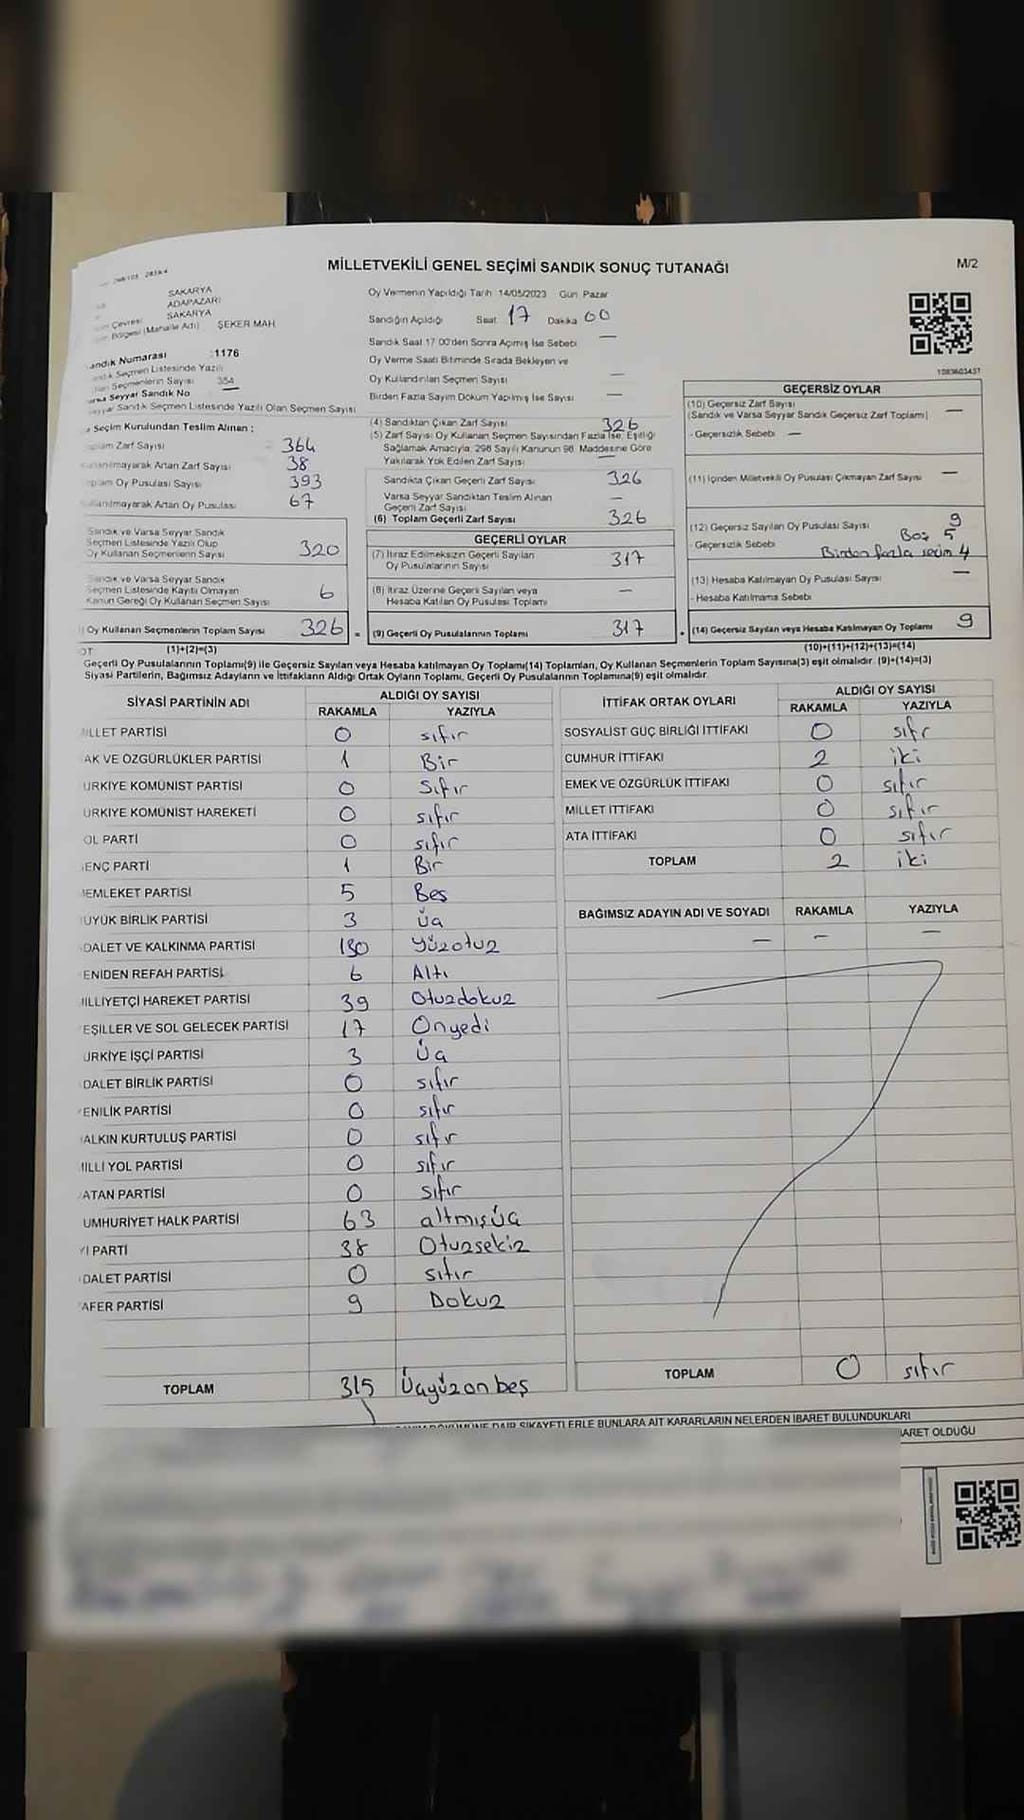 MİLLETVEKİLİ GENEL SEÇİMİ SANDIK SONUÇ TUTANAĞI
M/2
SAKARYA
ADAPAZARI
SAKARYA
Çevresi
Bölgesi (Mahalle Adı) ŞEKER MAH
Sandık Numarası :1176
Seçmen Listesinde Yazılı
Seçmenlerin Sayısı 354
Seyyar Sandık No
Sandık Seçmen Listesinde Yazılı Olan Seçmen Sayısı
Seçim Kurulundan Teslim Alınan :
Zarf Sayısı 364
Artan Zarf Sayısı 38
Oy Pusulası Sayısı 393
Artan Oy Pusulası 67
Sandık ve Varsa Seyyar Sandık
Seçmen Listesinde Yazılı Olup
Oy Kullanan Seçmenlerin Sayısı 320
Sandık ve Varsa Seyyar Sandık
Seçmen Listesinde Kayıtlı Olmayan
Kanun Gereği Oy Kullanan Seçmen Sayısı 6
Oy Kullanan Seçmenlerin Toplam Sayısı 326
(1)+(2)=(3)
Oy Vermenin Yapıldığı Tarih 14/05/2023 Gün Pazar
Sandığın Açıldığı Saat 17 Dakika 00
Sandık Saat 17 00'den Sonra Açımış İse Sebebi —
Oy Verme Saati Bitiminde Sırada Bekleyen ve
Oy Kullandırılan Seçmen Sayısı —
Birden Fazla Sayım Döküm Yapılmış İse Sayısı —
(4) Sandıktan Çıkan Zarf Sayısı 326
(5) Zarf Sayısı Oy Kullanan Seçmen Sayısından Fazla İse, Eşitliği
Sağlamak Amacıyla, 298 Sayılı Kanunun 98. Maddesine Göre
Yakılarak Yok Edilen Zarf Sayısı —
Sandıkta Çıkan Geçerli Zarf Sayısı 326
Varsa Seyyar Sandıktan Teslim Alınan
Geçerli Zarf Sayısı —
(6) Toplam Geçerli Zarf Sayısı 326
GEÇERLİ OYLAR
(7) İtiraz Edilmeksizin Geçerli Sayılan
Oy Pusulalarının Sayısı 317
(8) İtiraz Üzerine Geçerli Sayılan veya
Hesaba Katılan Oy Pusulası Toplamı —
(9) Geçerli Oy Pusulalarının Toplamı 317
GEÇERSİZ OYLAR
(10) Geçersiz Zarf Sayısı
(Sandık ve Varsa Seyyar Sandık Geçersiz Zarf Toplamı) —
- Geçersizlik Sebebi —
(11) İçinden Milletvekili Oy Pusulası Çıkmayan Zarf Sayısı —
(12) Geçersiz Sayılan Oy Pusulası Sayısı 9
- Geçersizlik Sebebi Boş 5
Birden fazla seçim 4
(13) Hesaba Katılmayan Oy Pusulası Sayısı —
- Hesaba Katılmama Sebebi
(14) Geçersiz Sayılan veya Hesaba Katılmayan Oy Toplamı 9
(10)+(11)+(12)+(13)=(14)
Geçerli Oy Pusulalarının Toplamı(9) ile Geçersiz Sayılan veya Hesaba katılmayan Oy Toplamı(14) Toplamları, Oy Kullanan Seçmenlerin Toplam Sayısına(3) eşit olmalıdır. (9)+(14)=(3)
Siyasi Partilerin, Bağımsız Adayların ve İttifakların Aldığı Ortak Oyların Toplamı, Geçerli Oy Pusulalarının Toplamına(9) eşit olmalıdır.
SİYASİ PARTİNİN ADI ALDIĞI OY SAYISI
RAKAMLA YAZIYLA
İLLET PARTİSİ 0 sıfır
AK VE ÖZGÜRLÜKLER PARTİSİ 1 Bir
ÜRKİYE KOMÜNİST PARTİSİ 0 Sıfır
ÜRKİYE KOMÜNİST HAREKETİ 0 sıfır
OL PARTİ 0 sıfır
ENÇ PARTİ 1 Bir
EMLEKET PARTİSİ 5 Beş
ÜYÜK BİRLİK PARTİSİ 3 Üç
DALET VE KALKINMA PARTİSİ 130 Yüzotuz
ENİDEN REFAH PARTİSİ 6 Altı
İLLİYETÇİ HAREKET PARTİSİ 39 Otuzdokuz
EŞİLLER VE SOL GELECEK PARTİSİ 17 Onyedi
ÜRKİYE İŞÇİ PARTİSİ 3 Üç
DALET BİRLİK PARTİSİ 0 sıfır
ENİLİK PARTİSİ 0 sıfır
ALKIN KURTULUŞ PARTİSİ 0 sıfır
İLLİ YOL PARTİSİ 0 sıfır
ATAN PARTİSİ 0 sıfır
UMHURİYET HALK PARTİSİ 63 altmışüç
Yİ PARTİ 38 Otuzsekiz
DALET PARTİSİ 0 sıfır
AFER PARTİSİ 9 Dokuz
TOPLAM 315 Üçyüzonbeş
İTTİFAK ORTAK OYLARI ALDIĞI OY SAYISI
RAKAMLA YAZIYLA
SOSYALİST GÜÇ BİRLİĞİ İTTİFAKI 0 sıfır
CUMHUR İTTİFAKI 2 iki
EMEK VE ÖZGÜRLÜK İTTİFAKI 0 sıfır
MİLLET İTTİFAKI 0 sıfır
ATA İTTİFAKI 0 sıfır
TOPLAM 2 iki
BAĞIMSIZ ADAYIN ADI VE SOYADI RAKAMLA YAZIYLA
— — —
TOPLAM 0 sıfır
DÖKÜMÜNE DAİR ŞİKAYETLERLE BUNLARA AİT KARARLARIN NELERDEN İBARET BULUNDUKLARI
BARET OLDUĞU